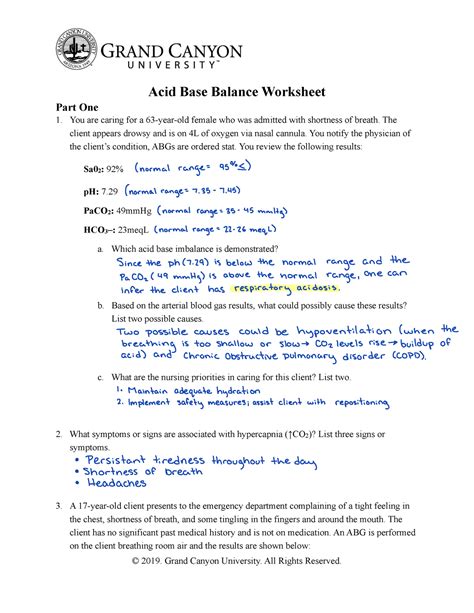 GRAND CANYON
UNIVERSITY™
Acid Base Balance Worksheet
Part One
1. You are caring for a 63-year-old female who was admitted with shortness of breath. The
client appears drowsy and is on 4L of oxygen via nasal cannula. You notify the physician of
the client's condition, ABGs are ordered stat. You review the following results:
Sa0₂: 92% (normal range = 95% ≤)
pH: 7.29 (normal range = 7.35 - 7.45)
PaCO₂: 49mmHg (normal range = 35 - 45 mmHg)
HCO₃–: 23meqL (normal range = 22-26 meq L)
a. Which acid base imbalance is demonstrated?
Since the ph (7.29) is below the normal range and the
PaCO₂ (49 mmHg) is above the normal range, one can
infer the client has respiratory acidosis.
b. Based on the arterial blood gas results, what could possibly cause these results?
List two possible causes.
Two possible causes could be hypoventilation (when the
breathing is too shallow or slow → CO₂ levels rise → buildup of
acid) and chronic obstructive pulmonary disorder (COPD).
c. What are the nursing priorities in caring for this client? List two.
1. Maintain adequate hydration
2. Implement safety measures; assist client with repositioning
2. What symptoms or signs are associated with hypercapnia (↑CO₂)? List three signs or
symptoms.
• Persistant tiredness throughout the day
• Shortness of breath
• Headaches
3. A 17-year-old client presents to the emergency department complaining of a tight feeling in
the chest, shortness of breath, and some tingling in the fingers and around the mouth. The
client has no significant past medical history and is not on medication. An ABG is performed
on the client breathing room air and the results are shown below:
© 2019. Grand Canyon University. All Rights Reserved.